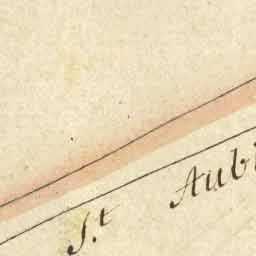 S.t Aubi